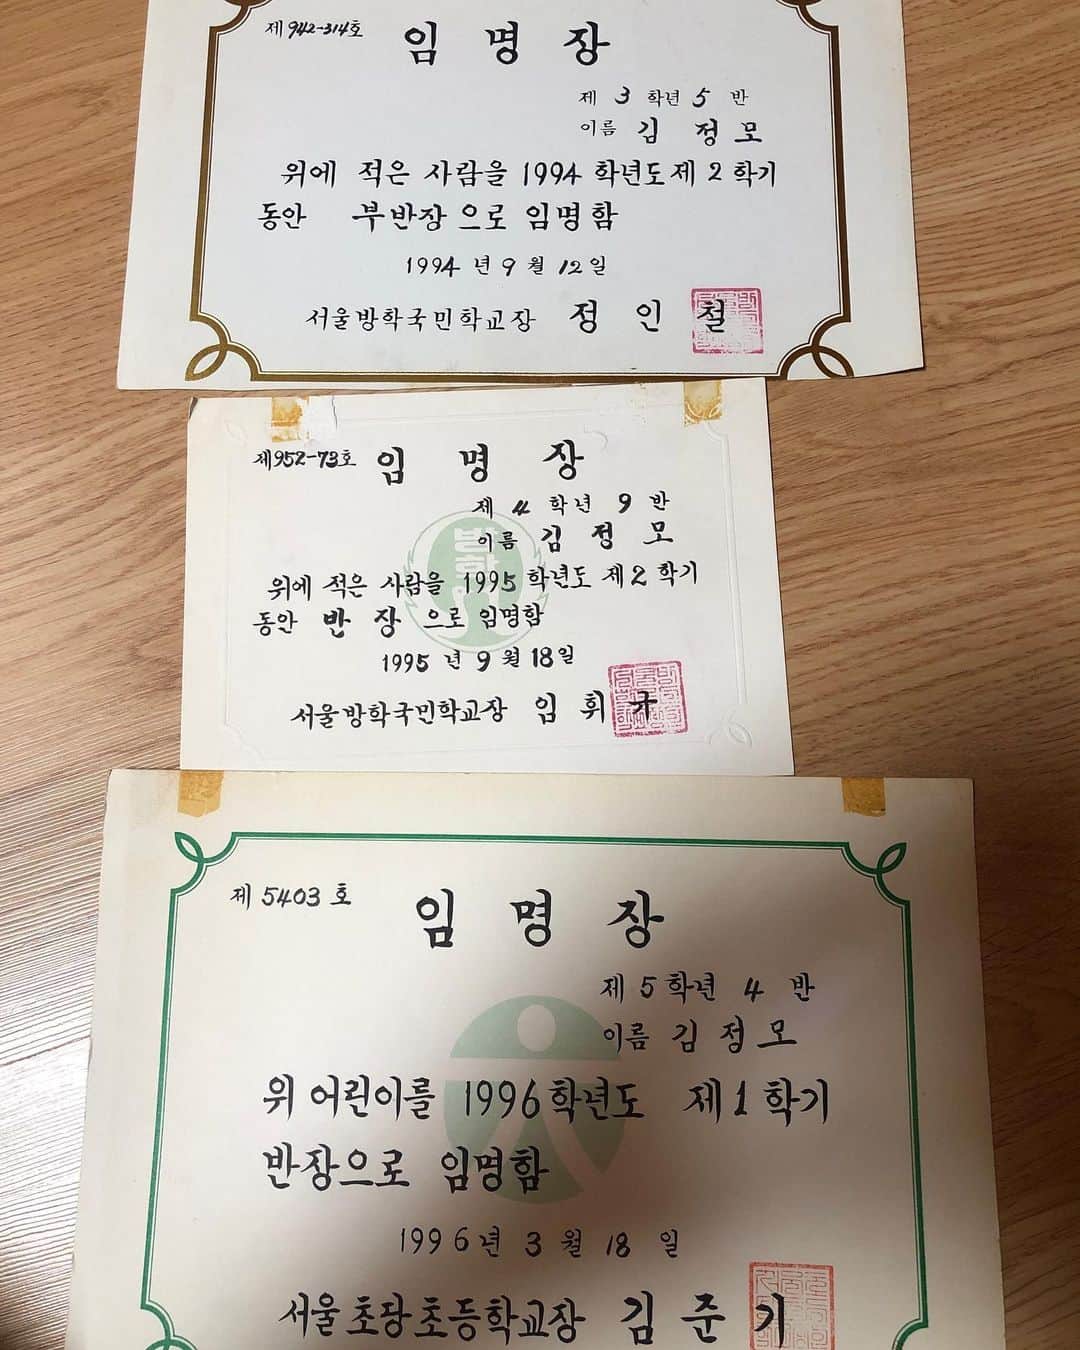 제942-314호
임 명 장
제 3 학년 5 반
이름 김 정 모
위에 적은 사람을 1994 학년도 제 2 학기
동안 부반장 으로 임명함
1994 년 9 월 12 일
서울방학국민학교장 정 인 철
제952-73호 임 명 장
제 4 학년 9 반
이름 김 정 모
위에 적은 사람을 1995 학년도 제2 학기
동안 반 장 으로 임명함
1995 년 9 월 18일
서울방학국민학교장 임 휘 규
방학
제 5403 호
임 명 장
제 5 학년 4 반
이름 김 정 모
위 어린이를 1996 학년도 제 1 학기
반장으로 임명함
1996 년 3 월 18 일
서울 초당 초등학교장 김 준 기